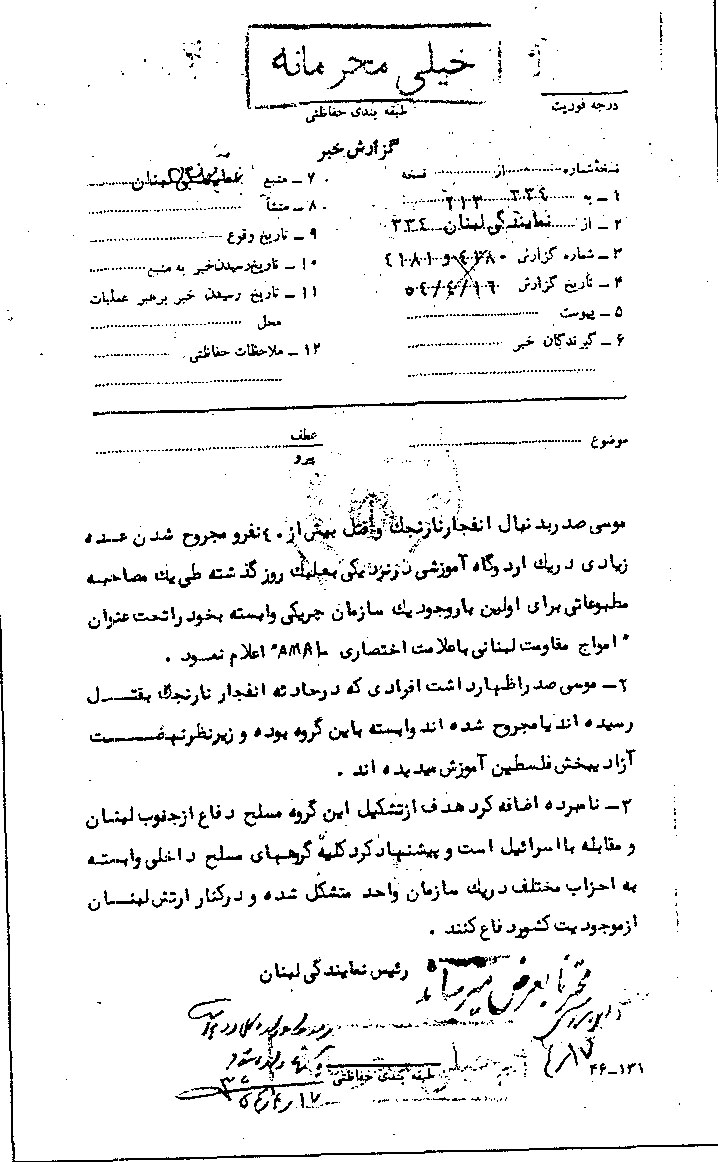 خیلی محرمانه
طبقه بندی حفاظتی
درجه فوریت
گزارش خبر
نسخه شماره ............ از ............ نسخه
۱ ـ به ۳۳۴ ۲۱۳
۲ ـ از نمایندگی لبنان ۳۳۴
۳ ـ شماره گزارش
۴ ـ تاریخ گزارش ۵۴/۴/۱۶
۵ ـ پیوست
۶ ـ گیرندگان خبر
۷ ـ منبع نمایندگی لبنان
۸ ـ منشأ
۹ ـ تاریخ وقوع
۱۰ ـ تاریخ رسیدن خبر به منبع
۱۱ ـ تاریخ رسیدن خبر برهبر عملیات
محل
۱۲ ـ ملاحظات حفاظتی
موضوع
عطف
پیرو
موسی صدر بدنبال انفجار نارنجك و قتل بیش از ۴۰ نفر و مجروح شدن عده
زیادی در یك اردوگاه آموزشی در نزدیکی بعلبك روز گذشته طی یك مصاحبه
مطبوعاتی برای اولین بار وجود یك سازمان چریکی وابسته بخود را تحت عنوان
" امواج مقاومت لبنانی با علامت اختصاری " اعلام نمود .
۲ ـ موسی صدر اظهار داشت افرادی که در حادثه انفجار نارنجك بقتـــل
رسیده اند یا مجروح شده اند وابسته باین گروه بوده و زیر نظر نهضـــت
آزادیبخش فلسطین آموزش میدیده اند .
۳ ـ نامبرده اضافه کرد هدف از تشکیل این گروه مسلح دفاع از جنوب لبنان
و مقابله با اسرائیل است و پیشنهاد کرد کلیه گروههای مسلح داخلی وابسته
به احزاب مختلف در یك سازمان واحد متشکل شده و در کنار ارتش لبنـــان
از موجودیت کشور دفاع کنند .
رئیس نمایندگی لبنان
محترما بعرض میرساند
۴/۱۷
طبقه بندی حفاظتی
۴۶ـ۱۳۱